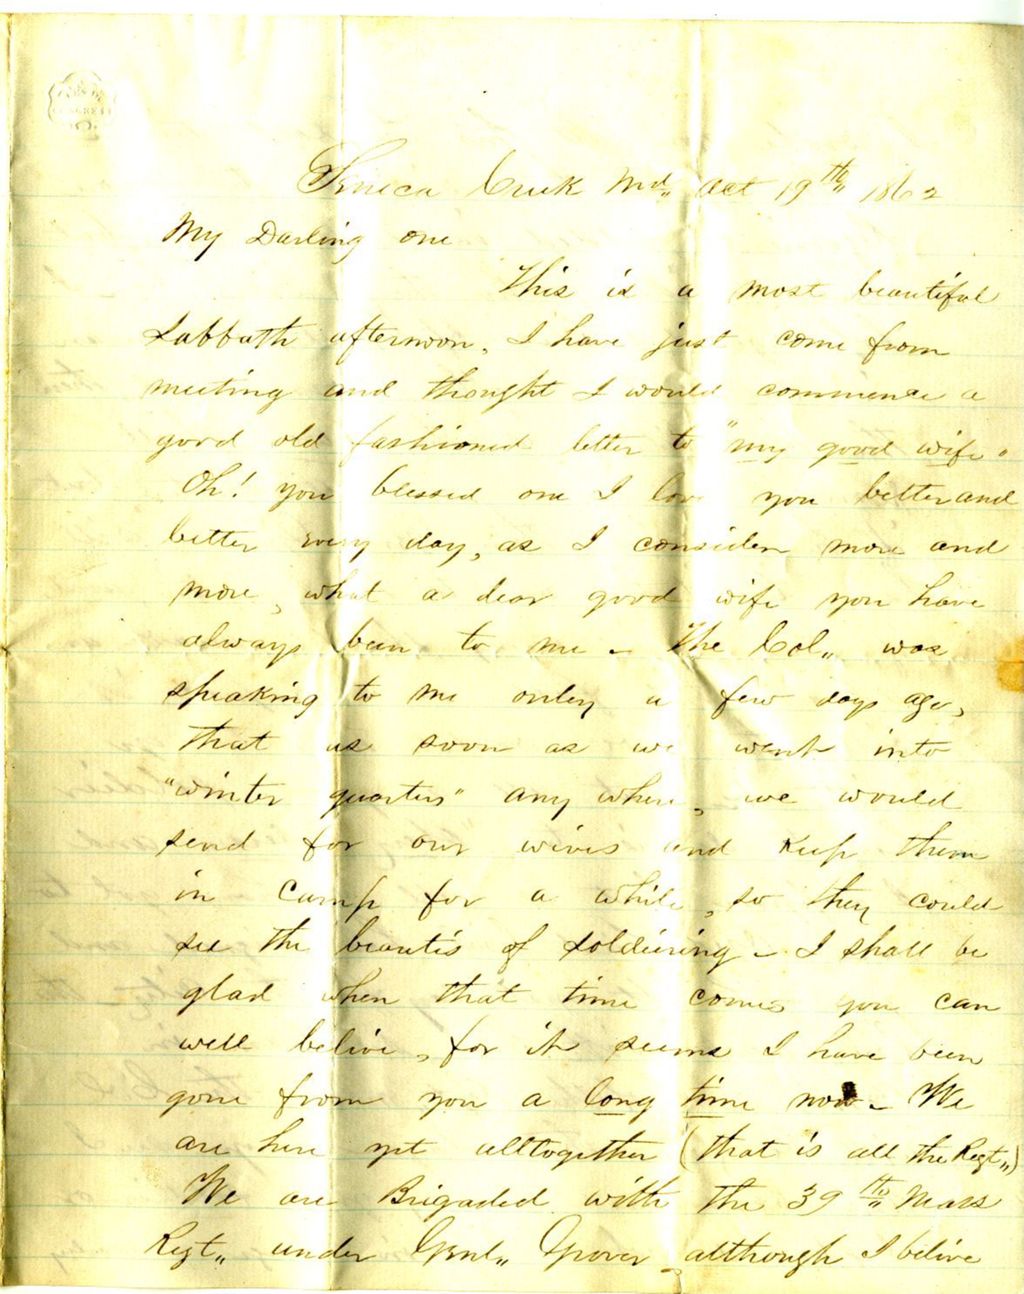 CONGRESS
Seneca Creek Md„ Oct 19th„ 1862
My Darling one
This is a most beautiful
Sabbath afternoon, I have just come from
meeting and thought I would commence a
good old fashioned letter to "my good wife"
Oh! you blessed one I love you better and
better every day, as I consider more and
more, what a dear good wife you have
always been to me - The Col„ was
speaking to me only a few days ago,
that as soon as we went into
"winter quarters" any where, we would
send for our wives and keep them
in Camp for a while, so they could
see the beautis of soldiering - I shall be
glad when that time comes you can
well belive, for it seems I have been
gone from you a long time now - We
are here yet alltogether (that is all the Regt„)
We are Brigaded with the 39th„ Mass
Regt„ under Genl„ Grover, although I belive